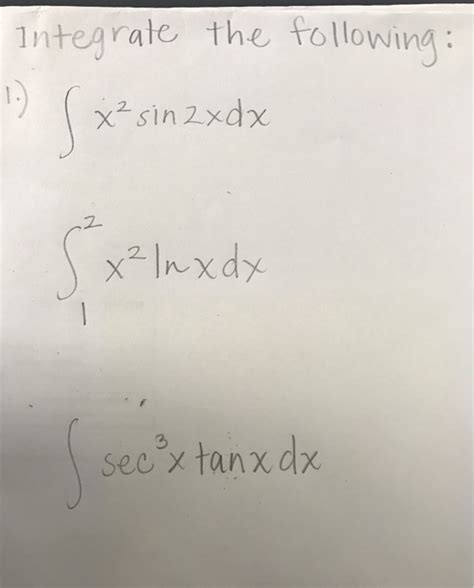 Integrate the following:
1.) ∫ x² sin 2x dx
∫₁² x² ln x dx
∫ sec³x tanx dx